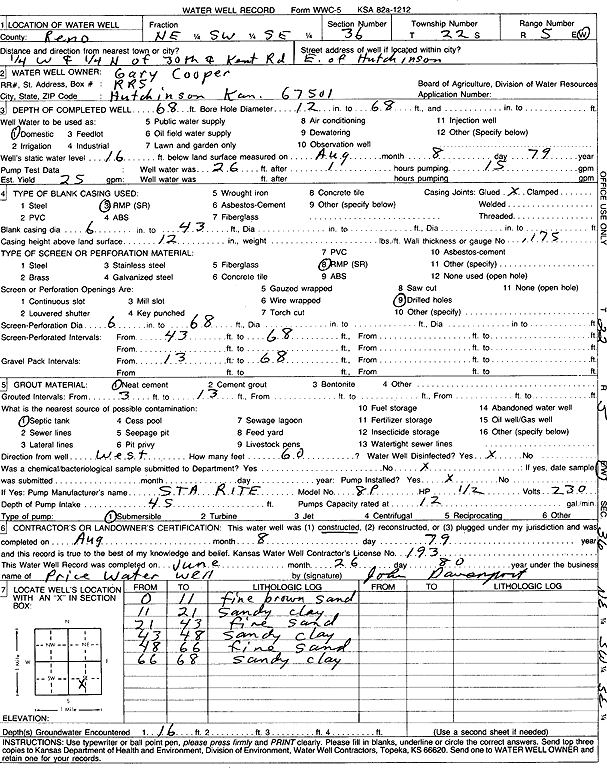 WATER WELL RECORD Form WWC-5 KSA 82a-1212
1 LOCATION OF WATER WELL Fraction Section Number Township Number Range Number
County: Reno NE ¼ SW ¼ SE ¼ 36 T 22 S R 5 E(W)
Distance and direction from nearest town or city? Street address of well if located within city?
1/4 W & 1/4 N of 30th & Kent Rd E. of Hutchinson
2 WATER WELL OWNER: Gary Cooper
RR#, St. Address, Box # : RR5 Board of Agriculture, Division of Water Resources
City, State, ZIP Code : Hutchinson Kan. 67501 Application Number:
3 DEPTH OF COMPLETED WELL 68 ft. Bore Hole Diameter 12 in. to 68 ft., and in. to ft.
Well Water to be used as: 5 Public water supply 8 Air conditioning 11 Injection well
1 Domestic 3 Feedlot 6 Oil field water supply 9 Dewatering 12 Other (Specify below)
2 Irrigation 4 Industrial 7 Lawn and garden only 10 Observation well
Well's static water level 16 ft. below land surface measured on Aug month 8 day 79 year
Pump Test Data : Well water was 26 ft. after 1 hours pumping 15 gpm
Est. Yield 25 gpm: Well water was ft. after hours pumping gpm
4 TYPE OF BLANK CASING USED: 5 Wrought iron 8 Concrete tile Casing Joints: Glued X Clamped
1 Steel 3 RMP (SR) 6 Asbestos-Cement 9 Other (specify below) Welded
2 PVC 4 ABS 7 Fiberglass Threaded
Blank casing dia 6 in. to 43 ft., Dia in. to ft., Dia in. to ft.
Casing height above land surface 12 in., weight lbs./ft. Wall thickness or gauge No .175
TYPE OF SCREEN OR PERFORATION MATERIAL: 7 PVC 10 Asbestos-cement
1 Steel 3 Stainless steel 5 Fiberglass 8 RMP (SR) 11 Other (specify)
2 Brass 4 Galvanized steel 6 Concrete tile 9 ABS 12 None used (open hole)
Screen or Perforation Openings Are: 5 Gauzed wrapped 8 Saw cut 11 None (open hole)
1 Continuous slot 3 Mill slot 6 Wire wrapped 9 Drilled holes
2 Louvered shutter 4 Key punched 7 Torch cut 10 Other (specify)
Screen-Perforation Dia 6 in. to 68 ft., Dia in. to ft., Dia in. to ft
Screen-Perforated Intervals: From 43 ft. to 68 ft., From ft. to ft.
From ft. to ft., From ft. to ft.
Gravel Pack Intervals: From 13 ft. to 68 ft., From ft. to ft.
From ft. to ft., From ft. to ft.
5 GROUT MATERIAL: 1 Neat cement 2 Cement grout 3 Bentonite 4 Other
Grouted Intervals: From 3 ft. to 13 ft., From ft. to ft., From ft. to ft.
What is the nearest source of possible contamination: 10 Fuel storage 14 Abandoned water well
1 Septic tank 4 Cess pool 7 Sewage lagoon 11 Fertilizer storage 15 Oil well/Gas well
2 Sewer lines 5 Seepage pit 8 Feed yard 12 Insecticide storage 16 Other (specify below)
3 Lateral lines 6 Pit privy 9 Livestock pens 13 Watertight sewer lines
Direction from well west How many feet 60 ? Water Well Disinfected? Yes X No
Was a chemical/bacteriological sample submitted to Department? Yes No X : If yes, date sample
was submitted month day year: Pump Installed? Yes X No
If Yes: Pump Manufacturer's name STA RITE Model No. 8P HP 1/2 Volts 230
Depth of Pump Intake 45 ft. Pumps Capacity rated at 12 gal./min
Type of pump: 1 Submersible 2 Turbine 3 Jet 4 Centrifugal 5 Reciprocating 6 Other
6 CONTRACTOR'S OR LANDOWNER'S CERTIFICATION: This water well was (1) constructed, (2) reconstructed, or (3) plugged under my jurisdiction and was
completed on Aug month 8 day 79 year
and this record is true to the best of my knowledge and belief. Kansas Water Well Contractor's License No. 193
This Water Well Record was completed on June month 26 day 80 year under the business
name of Price Water Well by (signature) John Davenport
7 LOCATE WELL'S LOCATION WITH AN "X" IN SECTION BOX: FROM TO LITHOLOGIC LOG FROM TO LITHOLOGIC LOG
0 11 fine brown sand
11 21 sandy clay
21 43 fine sand
43 48 sandy clay
48 66 fine sand
66 68 sandy clay
N
NW NE
W E
SW SE
X
S
1 Mile
1 Mile
ELEVATION:
Depth(s) Groundwater Encountered 1. 16 ft. 2. ft. 3. ft. 4. ft. (Use a second sheet if needed)
INSTRUCTIONS: Use typewriter or ball point pen, please press firmly and PRINT clearly. Please fill in blanks, underline or circle the correct answers. Send top three
copies to Kansas Department of Health and Environment, Division of Environment, Water Well Contractors, Topeka, KS 66620. Send one to WATER WELL OWNER and
retain one for your records.
OFFICE USE ONLY
T 22
R 5
EW
SEC 36
NE ¼ SW ¼ SE ¼